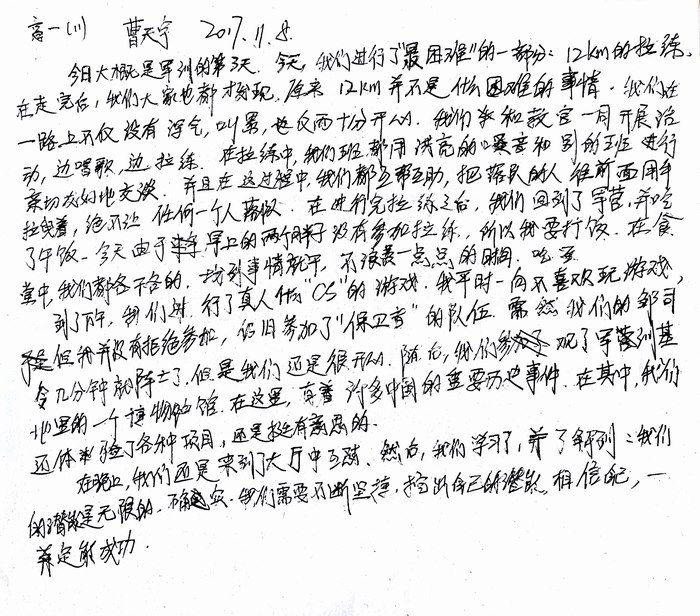 高一(1) 曹天宇 2017.11.8.
今日大概是军训的第3天. 今天, 我们进行了"最困难"的一部分: 12km的拉练.
在走完后, 我们大家也都才发现, 原来 12km 并不是什么困难的事情. 我们在
一路上不仅没有泄气, 叫累, 也反而十分开心. 我们亲和教官一同开展活
动, 边唱歌, 边拉练. 在拉练中, 我们班都用洪亮的嗓音和别的班进行
亲切友好地交谈. 并且在这过程中, 我们都互帮互助, 把落队的人往前面用手
拉着, 绝不让任何一个人落伍. 在进行完拉练之后, 我们回到了军营, 并吃
了午饭. 今天由于早上的两个胖子没有参加拉练, 所以我要打饭. 在食
堂中, 我们都各干各的. 一切到事情就干, 不浪费一点点的时间. 吃至
到了下午, 我们进行了真人做"CS"的游戏. 我平时一向不喜欢玩游戏,
但我并没有拒绝参加, 仍旧参加了"保卫者"的队伍. 虽然我们的部司
令几分钟就阵亡了, 但是我们还是很开心. 随后, 我们参观了军营训基
地里的一个博物馆. 在这里, 有着许多中国的重要历史事件. 在其中, 我们
还体验了各种项目, 还是挺有意思的.
在晚上, 我们还是来到了大厅中 然后, 我们学习了, 并了解到: 我们
的潜能是无限的. 不确实. 我们需要不断坚持, 挖出自己的潜能, 相信自己, 一
定能成功.